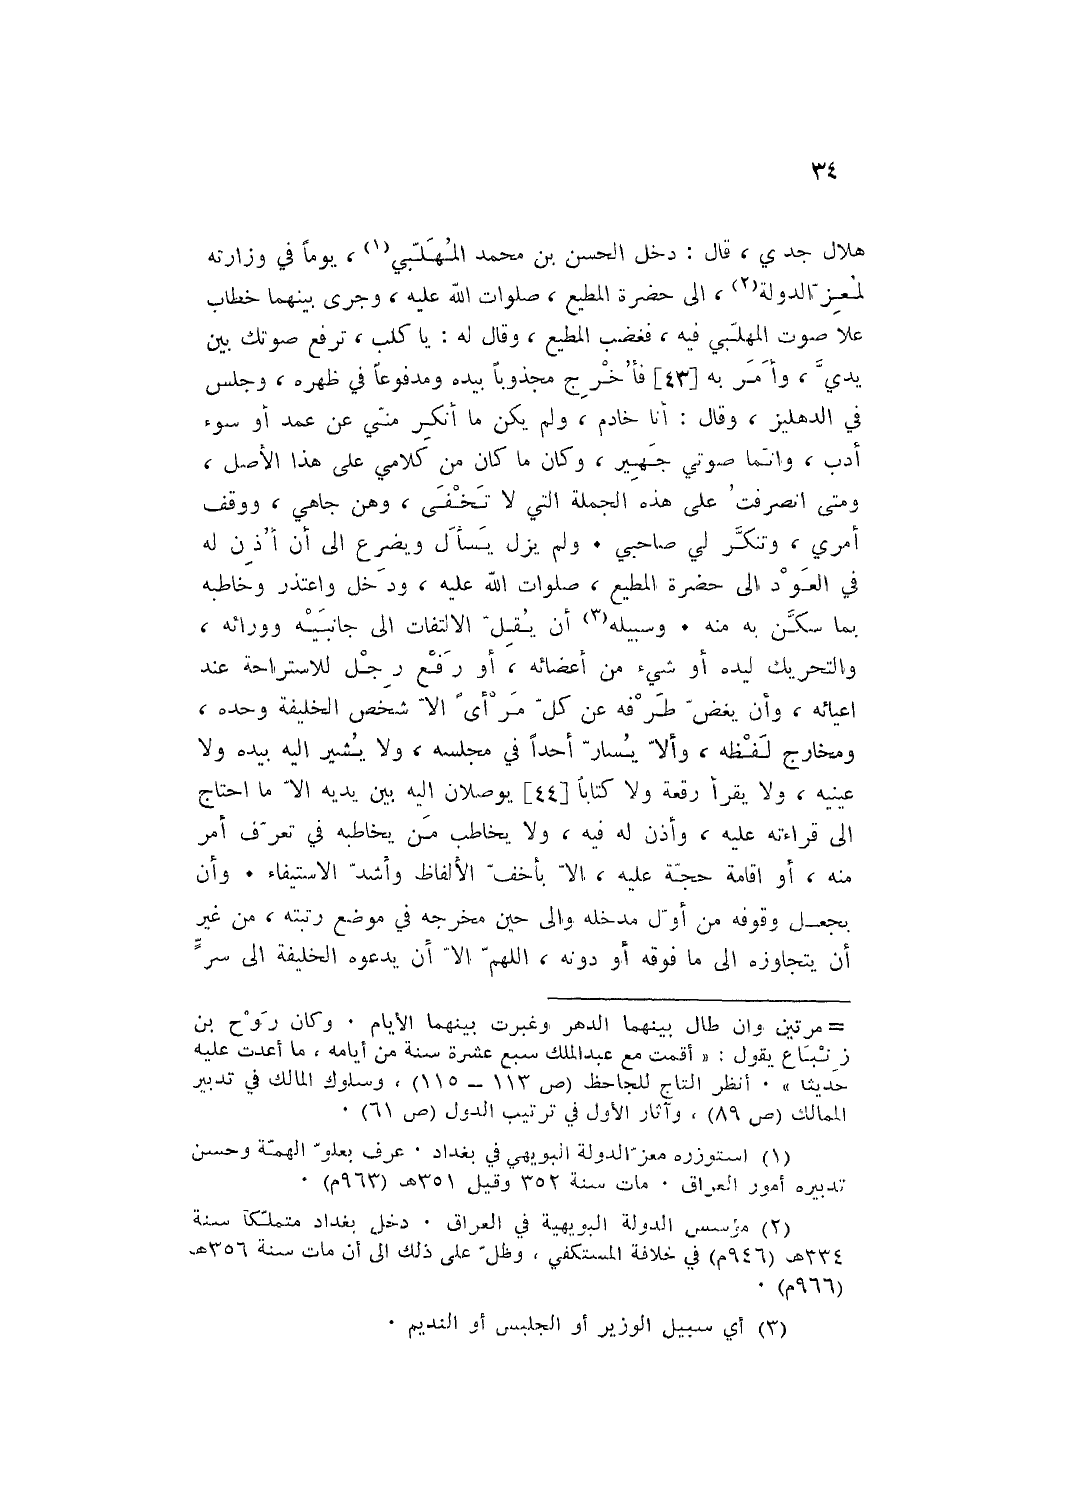 ٣٤
هلال جدي ، قال : دخل الحسن بن محمد المُهَلّبي(١) ، يوماً في وزارته
لمُعِزّ الدولة(٢) ، الى حضرة المطيع ، صلوات الله عليه ، وجرى بينهما خطاب
علا صوت المهلّبي فيه ، فغضب المطيع ، وقال له : يا كلب ، ترفع صوتك بين
يديَّ ، وأَمَر به [٤٣] فأُخْرِج مجذوباً بيده ومدفوعاً في ظهره ، وجلس
في الدهليز ، وقال : أنا خادم ، ولم يكن ما أنكِر منّي عن عمد أو سوء
أدب ، وانّما صوتي جَهِير ، وكان ما كان من كلامي على هذا الأصل ،
ومتى انصرفتُ على هذه الجملة التي لا تَخْفَى ، وهن جاهي ، ووقف
أمري ، وتنكَّر لي صاحبي . ولم يزل يَسأَل ويضرع الى أن أُذِن له
في العَوْد الى حضرة المطيع ، صلوات الله عليه ، ودَخل واعتذر وخاطبه
بما سكَّن به منه . وسبيله(٣) أن يُقِلّ الالتفات الى جانبَيْه وورائه ،
والتحريك ليده أو شيء من أعضائه ، أو رَفْع رِجْل للاستراحة عند
اعيائه ، وأن يغضّ طَرْفه عن كلّ مَرْأىً الاّ شخص الخليفة وحده ،
ومخارج لَفْظه ، وألاّ يُسارّ أحداً في مجلسه ، ولا يُشير اليه بيده ولا
عينيه ، ولا يقرأ رقعة ولا كتاباً [٤٤] يوصلان اليه بين يديه الاّ ما احتاج
الى قراءته عليه ، وأذن له فيه ، ولا يخاطب مَن يخاطبه في تعرّف أمر
منه ، أو اقامة حجّة عليه ، الاّ بأخفّ الألفاظ وأشدّ الاستيفاء . وأن
يجعل وقوفه من أوّل مدخله والى حين مخرجه في موضع رتبته ، من غير
أن يتجاوزه الى ما فوقه أو دونه ، اللهمّ الاّ أن يدعوه الخليفة الى سرٍّ
= مرتين وان طال بينهما الدهر وغبرت بينهما الأيام . وكان رَوْح بن
زِنْبَاع يقول : « أقمت مع عبدالملك سبع عشرة سنة من أيامه ، ما أعدت عليه
حديثا » . أنظر التاج للجاحظ (ص ١١٣ – ١١٥) ، وسلوك المالك في تدبير
الممالك (ص ٨٩) ، وآثار الأول في ترتيب الدول (ص ٦١) .
(١) استوزره معزّ الدولة البويهي في بغداد . عرف بعلوّ الهمّة وحسن
تدبيره أمور العراق . مات سنة ٣٥٢ وقيل ٣٥١هـ (٩٦٣م) .
(٢) مؤسس الدولة البويهية في العراق . دخل بغداد متملّكاً سنة
٣٣٤هـ (٩٤٦م) في خلافة المستكفي ، وظلّ على ذلك الى أن مات سنة ٣٥٦هـ
(٩٦٦م) .
(٣) أي سبيل الوزير أو الجليس أو النديم .